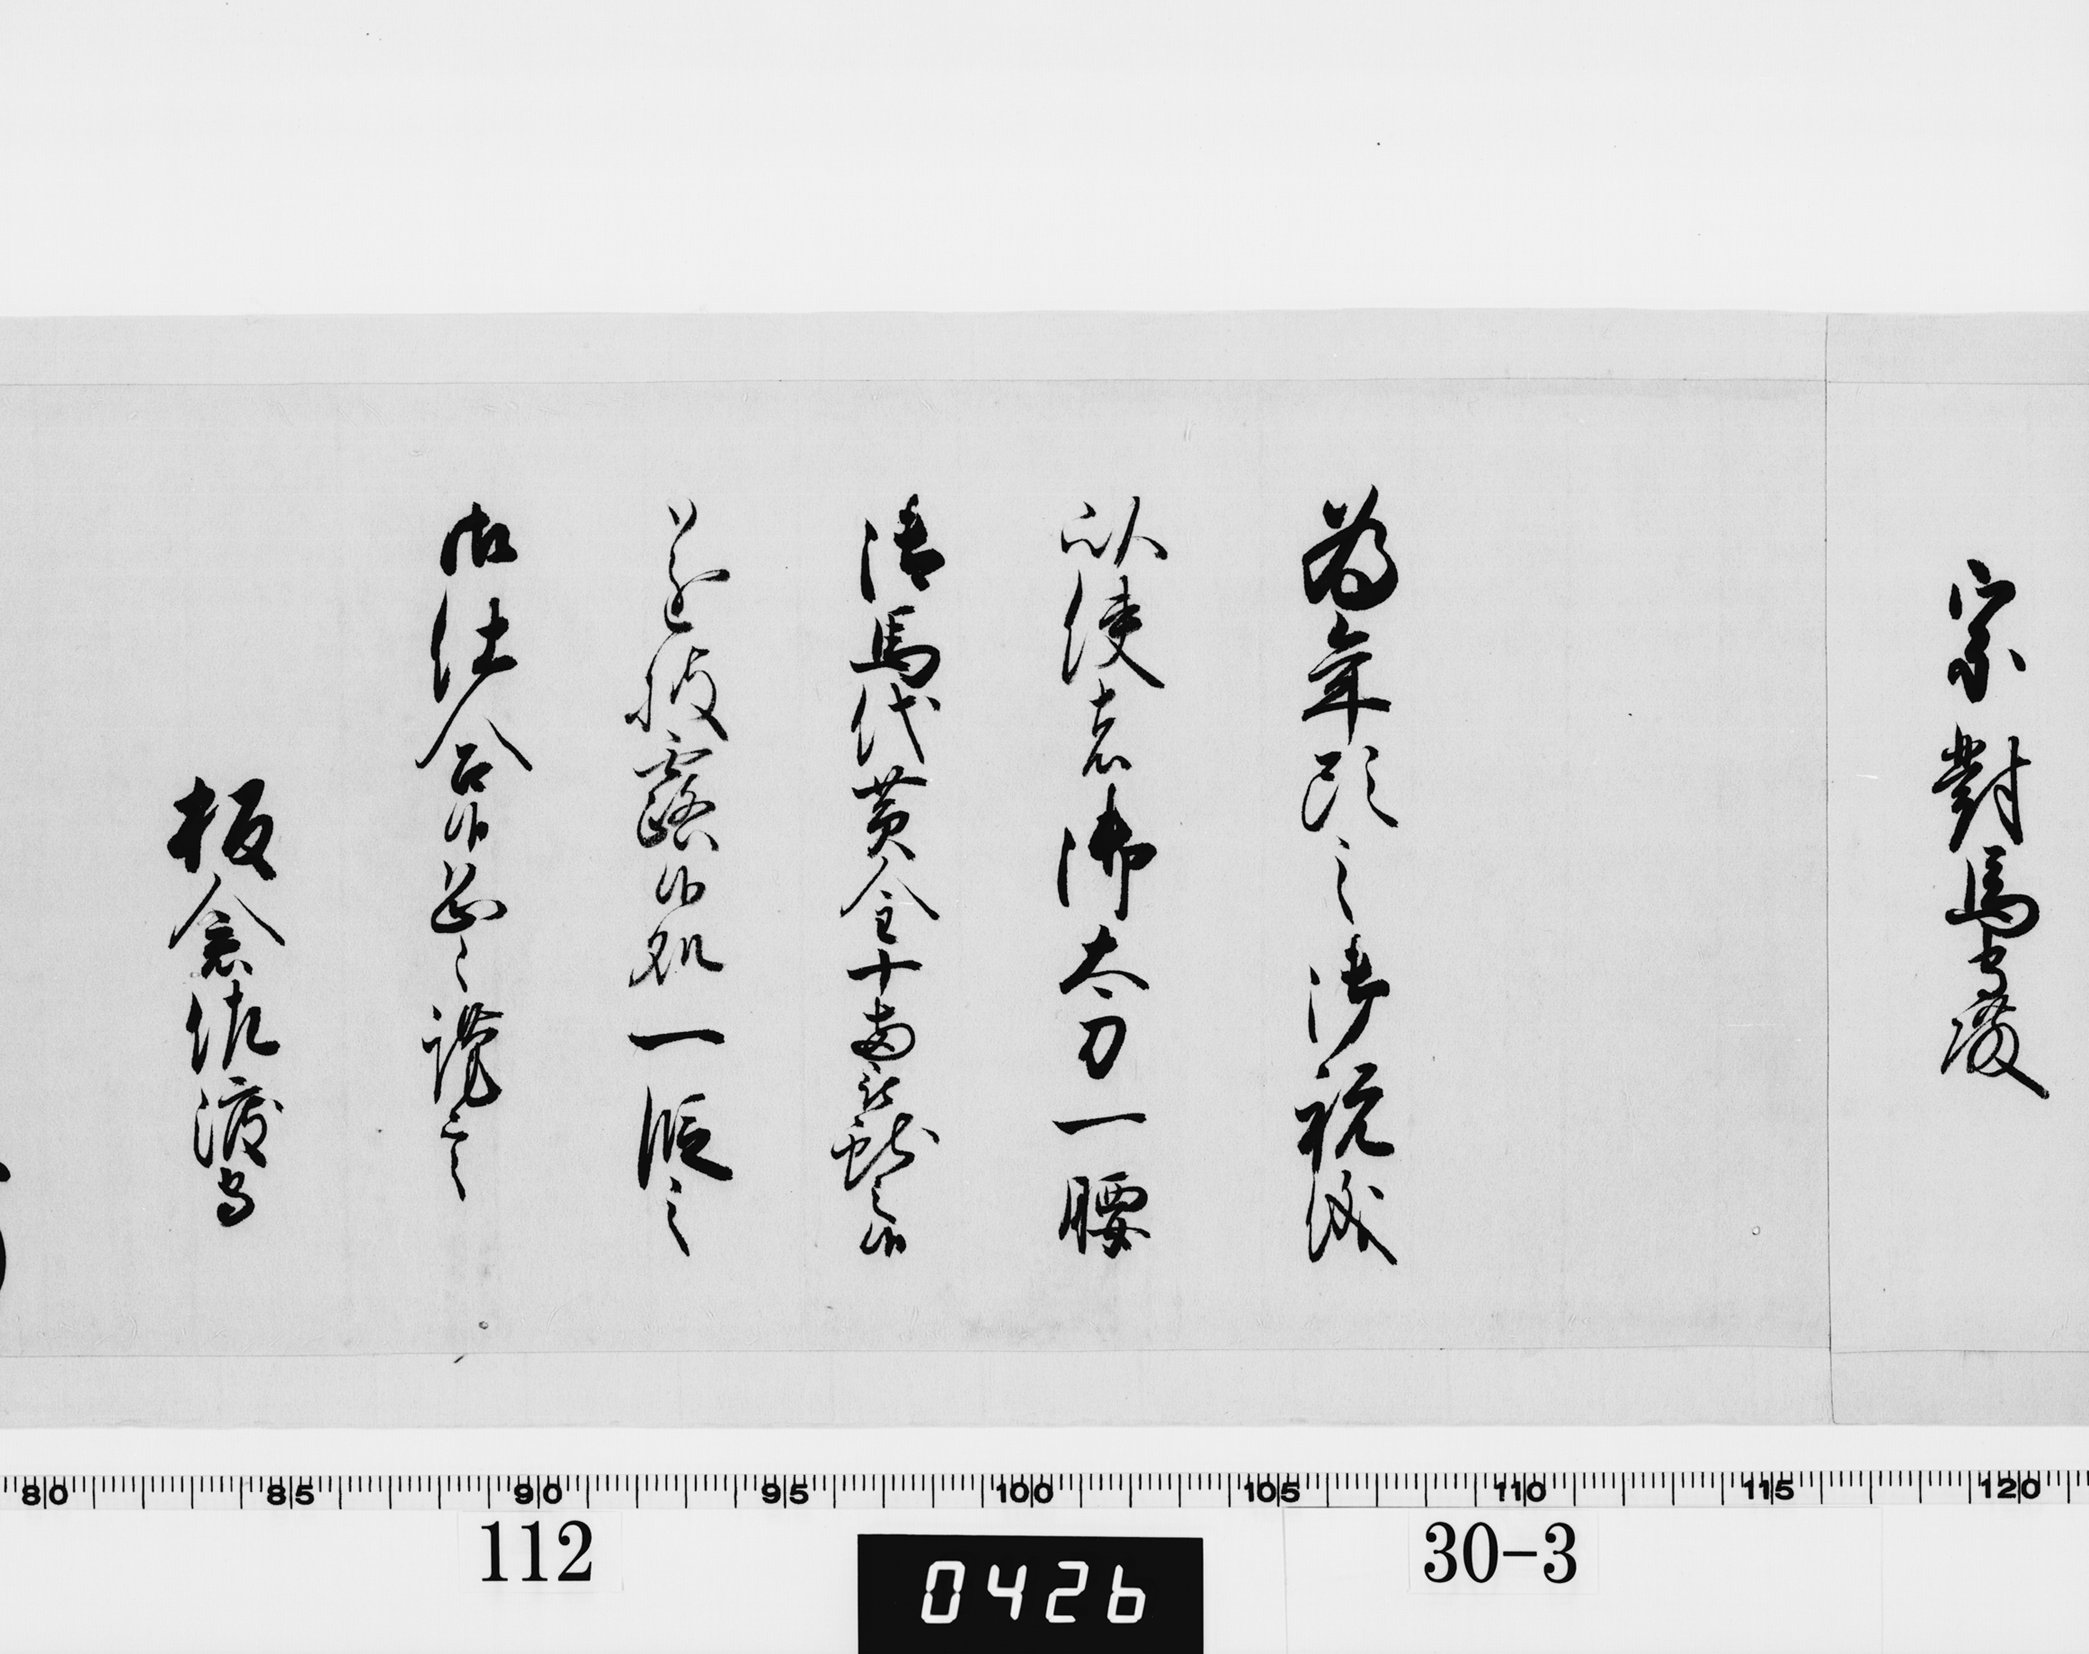 宗對馬守殿
為年頭之御祝儀
以使者御太刀一腰
御馬代黄金十両被献之候
遂披露候処一段之
御仕合候恐々謹言
板倉佐渡守
80 85 90 95 100 105 110 115 120
112
0426
30-3